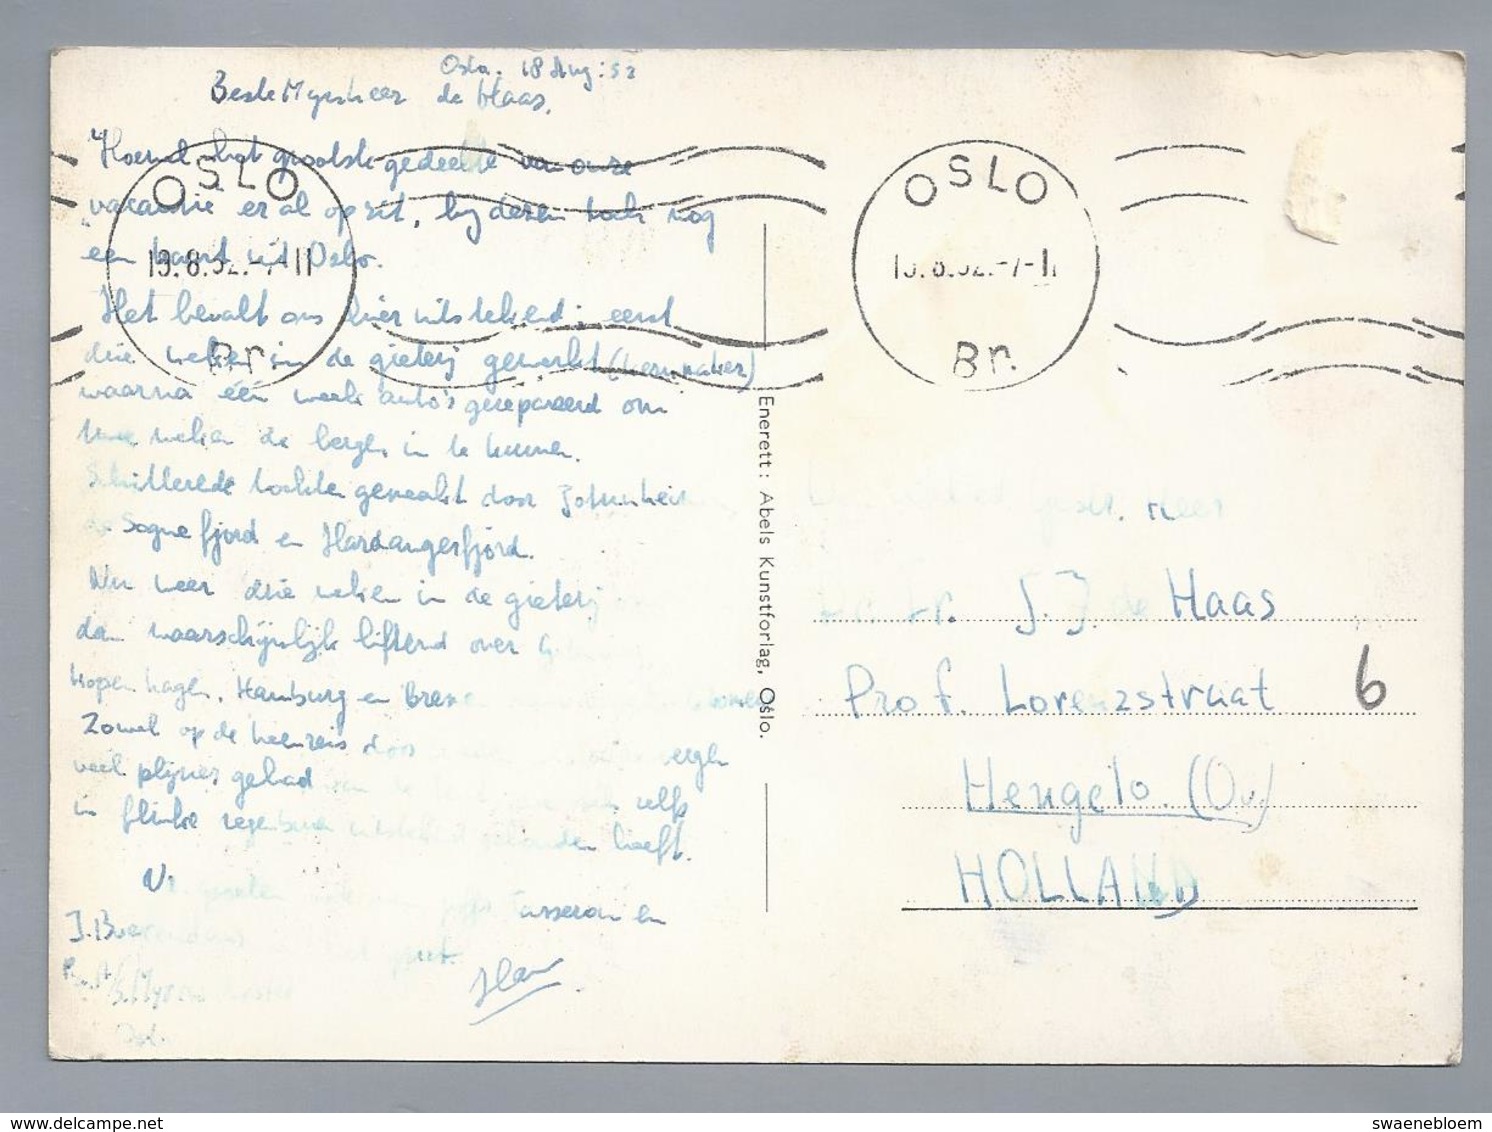 Oslo. 18 Aug: 52
Beste Mynheer de Haas,
Hoewel het grootste gedeelte van onze
vacantie er al op zit, bij dezen toch nog
een kaart uit Oslo.
Het bevalt ons hier uitstekend; eerst
drie weken in de gieterij gewerkt (kernmaker)
waarna één week auto's gerepareerd om
twee weken de bergen in te kunnen.
Schitterende tochten gemaakt door Jotunheimen,
de Sognefjord en Hardangerfjord.
Nu weer drie weken in de gieterij om
dan waarschijnlijk liftend over
Kopenhagen, Hamburg en Bremen
Zowel op de heenreis door bergen
veel plezier gehad van de zelfs
in flinke regenbuien uitstekend gehouden heeft.
Vr. groeten Tasseron en
J.
Han
OSLO
19.8.52.-7-11
Br.
OSLO
19.8.52.-7-11
Br.
Enerett: Abels Kunstforlag, Oslo.
Heer
Dr. Ir. J. J. de Haas
Prof. Lorenzstraat 6
Hengelo. (Ov.)
HOLLAND
www.delcampe.net
swaenebloem